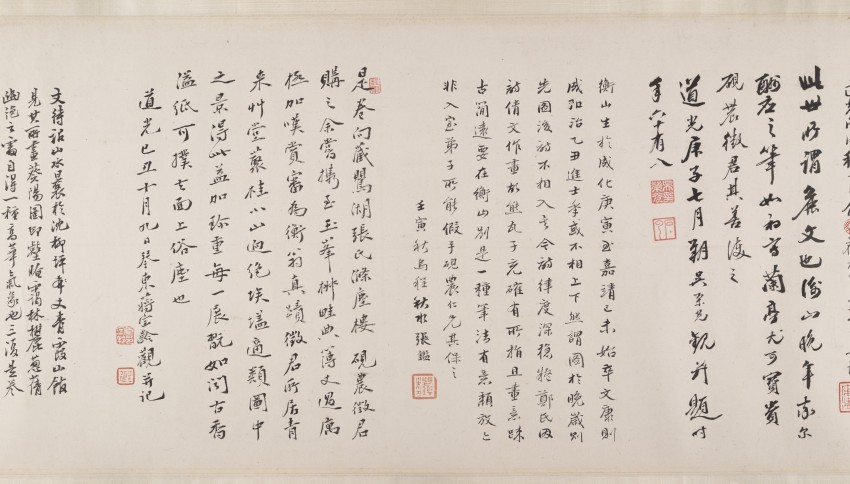 此世所謂麤文也衡山晚年率尔
酬应之筆如初寫蘭亭尤可寶貴
硯農徵君其善之
道光庚子七月朔吳榮光觀并題時
年六十有八
衡山生於成化庚寅至嘉靖己未始卒文康則
成弘治乙丑進士年或不相上下然謂圖於晚歲則
先圖後詩不相入矣今詩律度深穩於鄭氏因
詩倩文作畫於熊子充確有所指且畫意疎
古簡遠要在衡山別是一種筆法有意頹放之
非入室弟子所能假手硯農仁兄其保之
壬寅秋烏程秋水張鑑
是卷向藏鴛湖張氏滌塵樓硯農徵君
購之余嘗攜至玉峯畦典簿丈過寓
極加嘆賞審為衡翁真蹟徵君所居青
來艸堂叢桂小山迥絕埃壒適類圖中
之景得此益加珍重每一展翫如聞古香
溢紙可撲去面上俗塵也
道光己丑十月九日琴東蔣寶齡觀并記
文待詔山水曩於沈柳坪年丈青霞山館
見其所畫葵陽圖卽壑霭林樾蔥蒨
幽之自得一種高華氣象也三復是卷